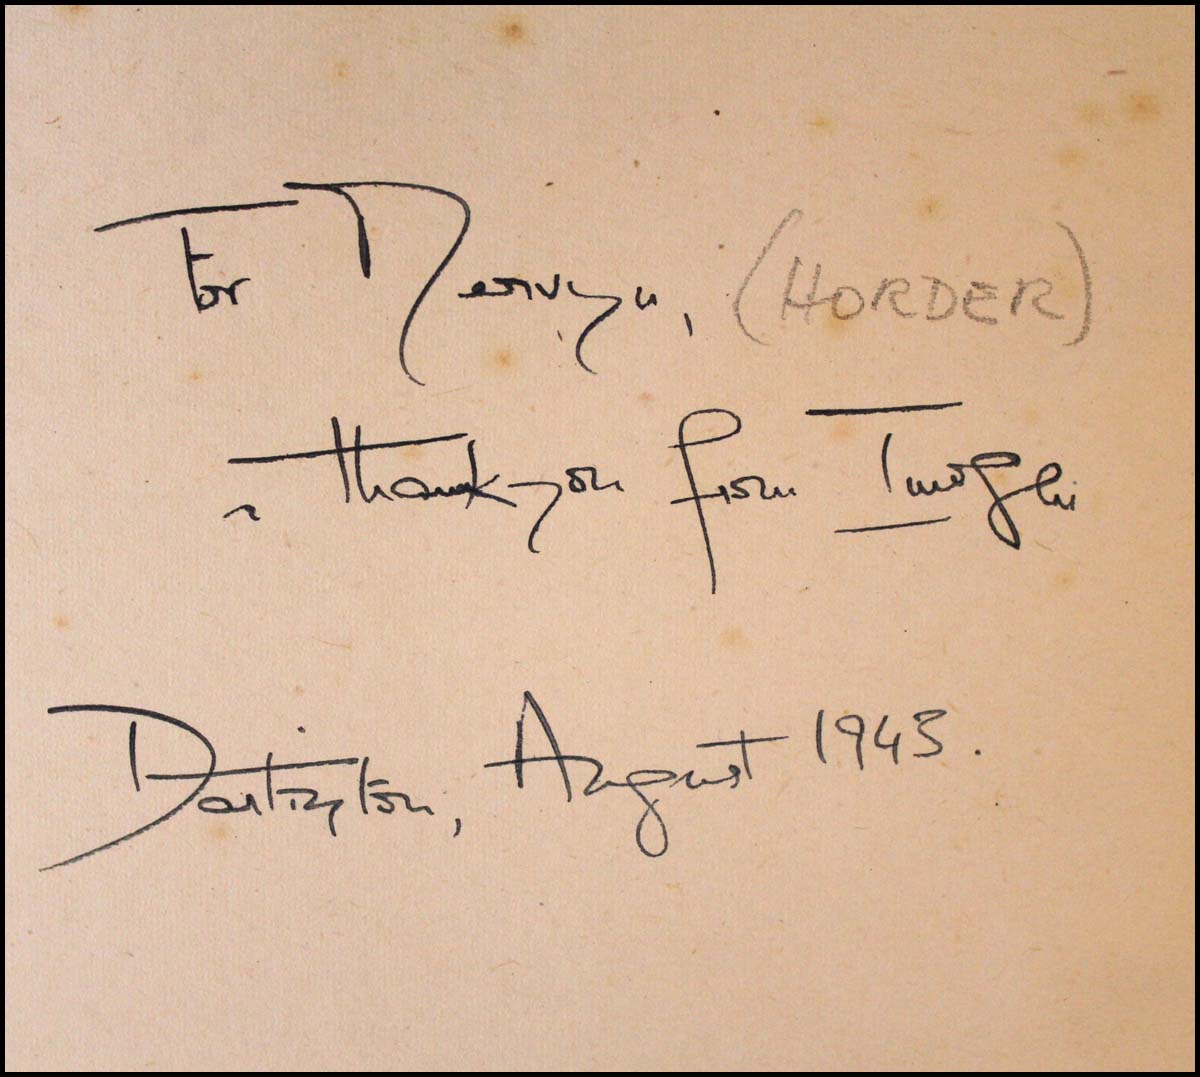 For Mervyn, (HORDER)
a thankyou from Imogen
Dartington, August 1943.